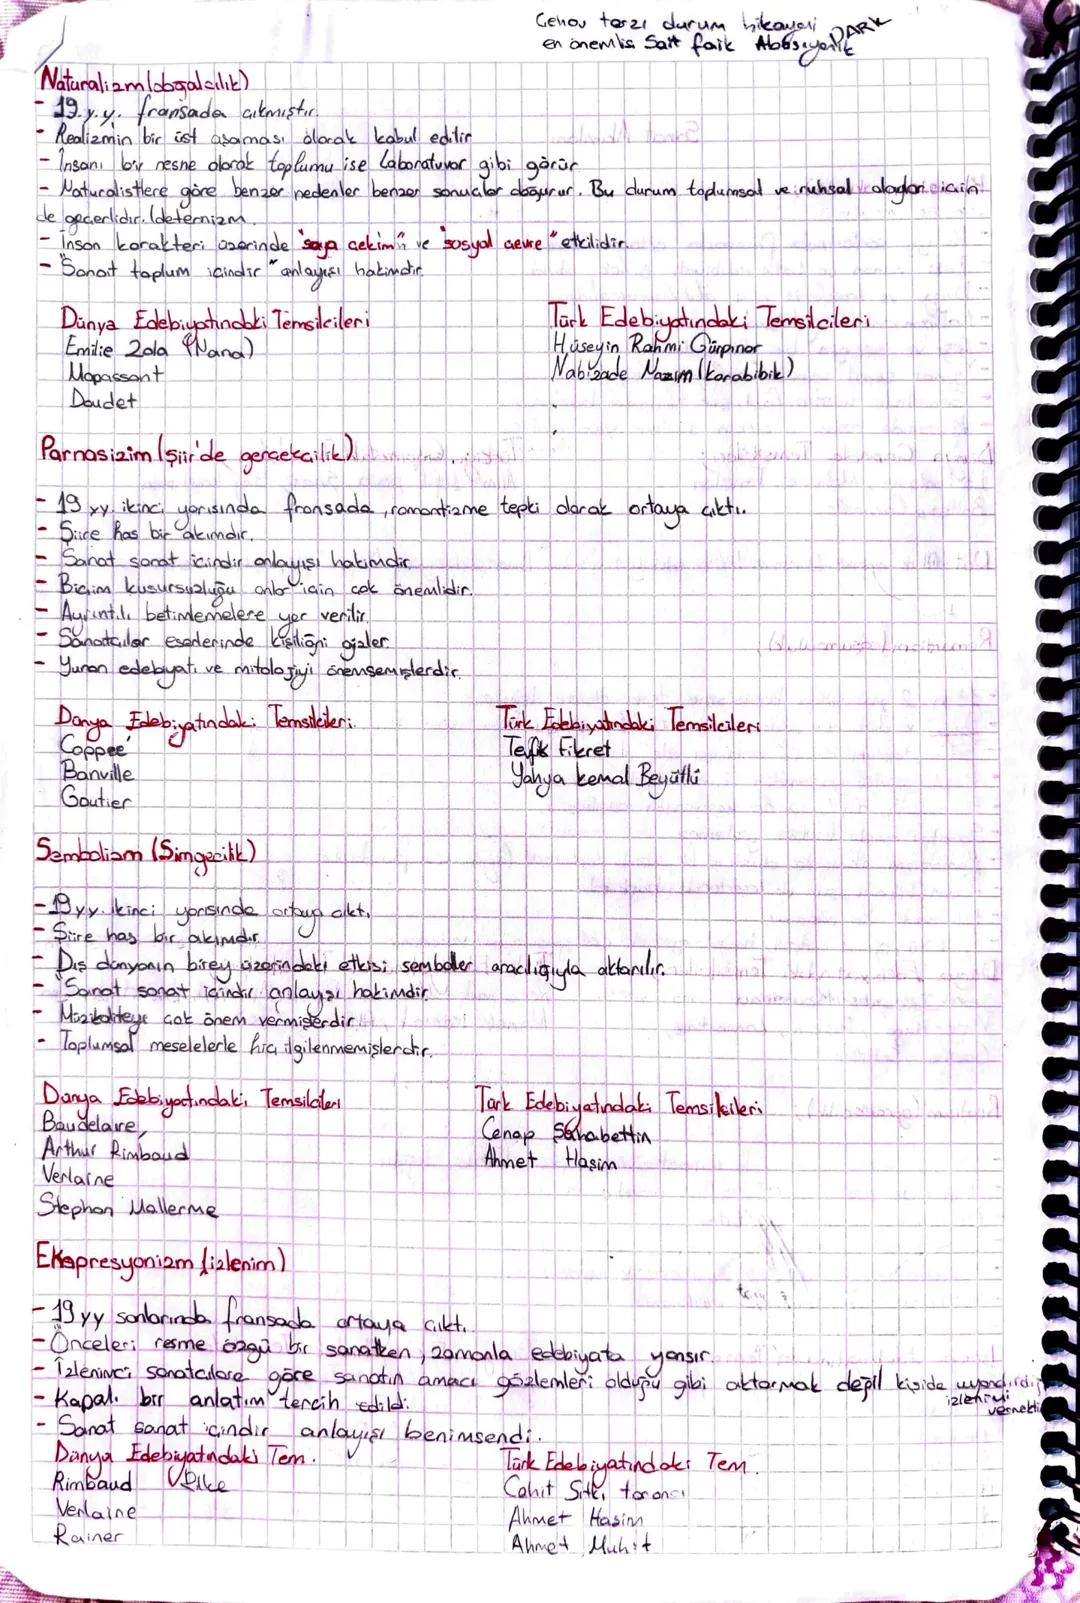 Cehov tarzı durum hikayeri
en önemlisi Sait faik Abasıyanık
DARK
Naturalizm (doğalcılık)
- 19.y.y. fransada çıkmıştır.
- Realizmin bir üst aşaması olarak kabul edilir
- İnsanı bir nesne olarak toplumu ise laboratuvar gibi görür
- Naturalistlere göre benzer nedenler benzer sonuçlar doğurur. Bu durum toplumsal ve ruhsal olaylar için
de geçerlidir. (deternizm
- İnsan karakteri üzerinde "soya çekim" ve "sosyal çevre" etkilidir.
- "Sanat toplum içindir" anlayışı hakimdir.
Dünya Edebiyatındaki Temsilcileri
Türk Edebiyatındaki Temsilcileri
Emilie Zola (Nana)
Hüseyin Rahmi Gürpınar
Mopassant
Nabizade Nazım (karabibik)
Daudet
Parnasizim (şiir'de gerçekçilik)
- 19 yy. ikinci yarısında fransada, romantizme tepki olarak ortaya çıktı.
- Şiire has bir akımdır.
- Sanat sanat içindir anlayışı hakimdir
- Biçim kusursuzluğu onlar için çok önemlidir.
- Ayrıntılı betimlemelere yer verilir.
- Sanatçılar eserlerinde kişiliğni gizler.
- Yunan edebiyatı ve mitolojiyi önemsemişlerdir.
Dünya Edebiyatındaki Temsilcileri
Türk Edebiyatındaki Temsilcileri
Coppeé
Tefik Fikret
Banville
Yahya kemal Beyatlı
Goutier
Sembolizm (Simgecilik)
- 19 yy. ikinci yarısında ortaya çıktı.
- Şiire has bir akımdır.
- Dış dünyanın birey üzerindeki etkisi semboller aracılığıyla aktarılır.
- "Sanat sanat içindir anlayışı hakimdir
- Müzikaliteye çok önem vermişlerdir.
- Toplumsal meselelerle hiç ilgilenmemişlerdir.
Dünya Edebiyatındaki Temsilcileri
Türk Edebiyatındaki Temsilcileri
Baudelaire,
Cenap Şahabettin
Arthur Rimbaud
Ahmet Haşim
Verlaine
Stephan Mallerme
Ekspresyonizm (izlenim)
- 19 yy sonlarında fransada ortaya çıktı.
- Önceleri resme özgü bir sanatken, zamanla edebiyata yansır.
- İzlenimci sanatçılara göre sanatın amacı gözlemleri olduğu gibi aktarmak değil kişide uyandırdığı
izlenimi
vermekti
- Kapalı bir anlatım tercih edildi.
- Sanat sanat içindir anlayışı benimsendi.
Dünya Edebiyatındaki Tem.
Türk Edebiyatındaki Tem.
Rimbaud
Cahit Sıtkı tarancı
Verlaine
Ahmet Haşim
Rainer
Ahmet Muhit